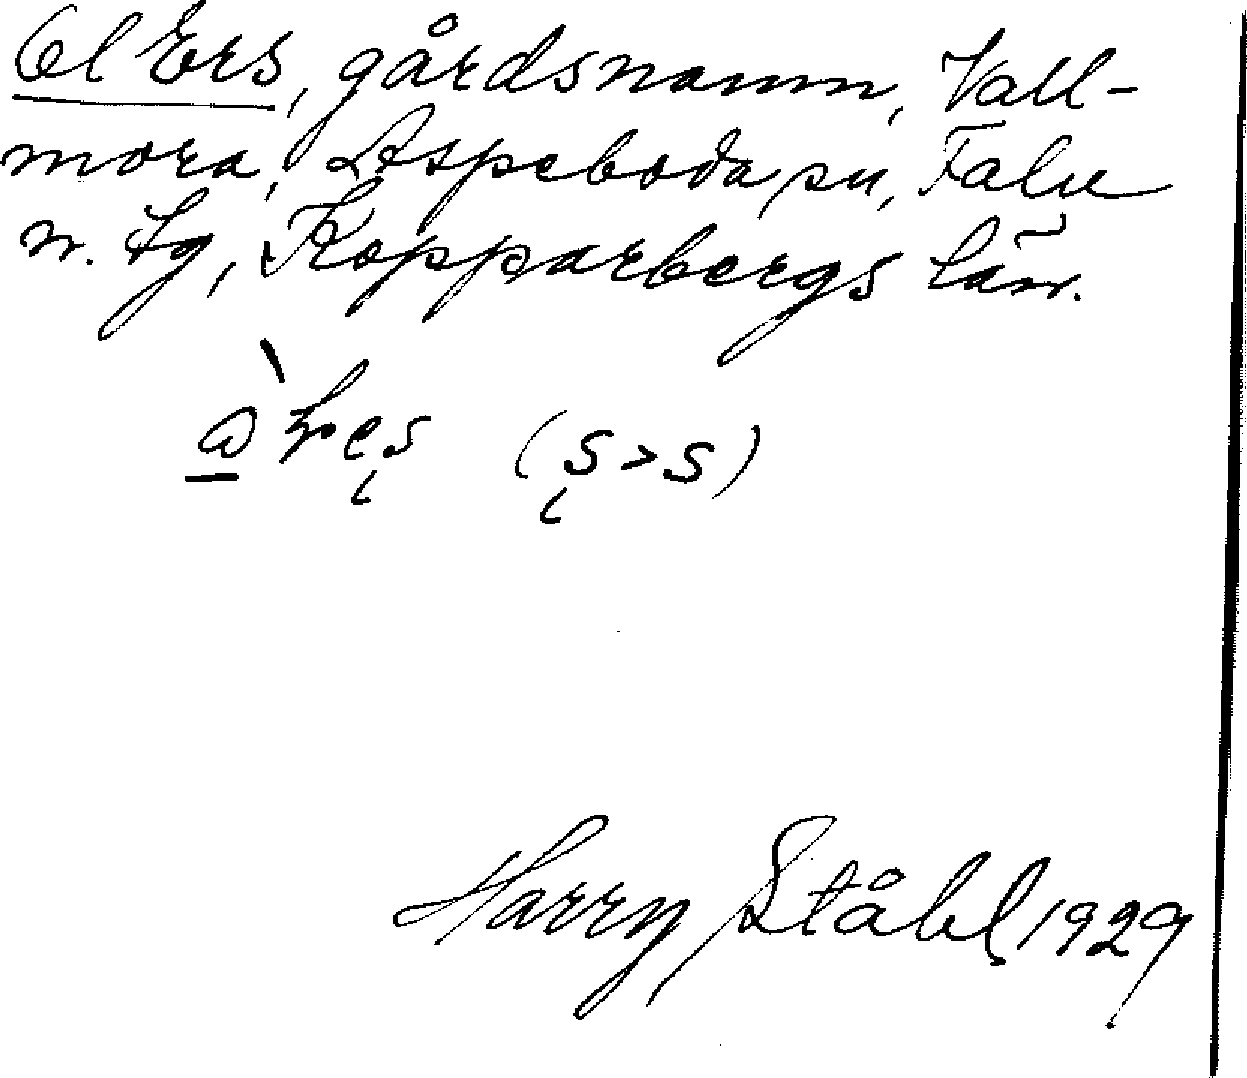 Ol Ers, gårdsnamn, Vall-
mora, Aspeboda sn, Falu
n. tg, Kopparbergs län.
(s > s)
Harry Ståhl 1929